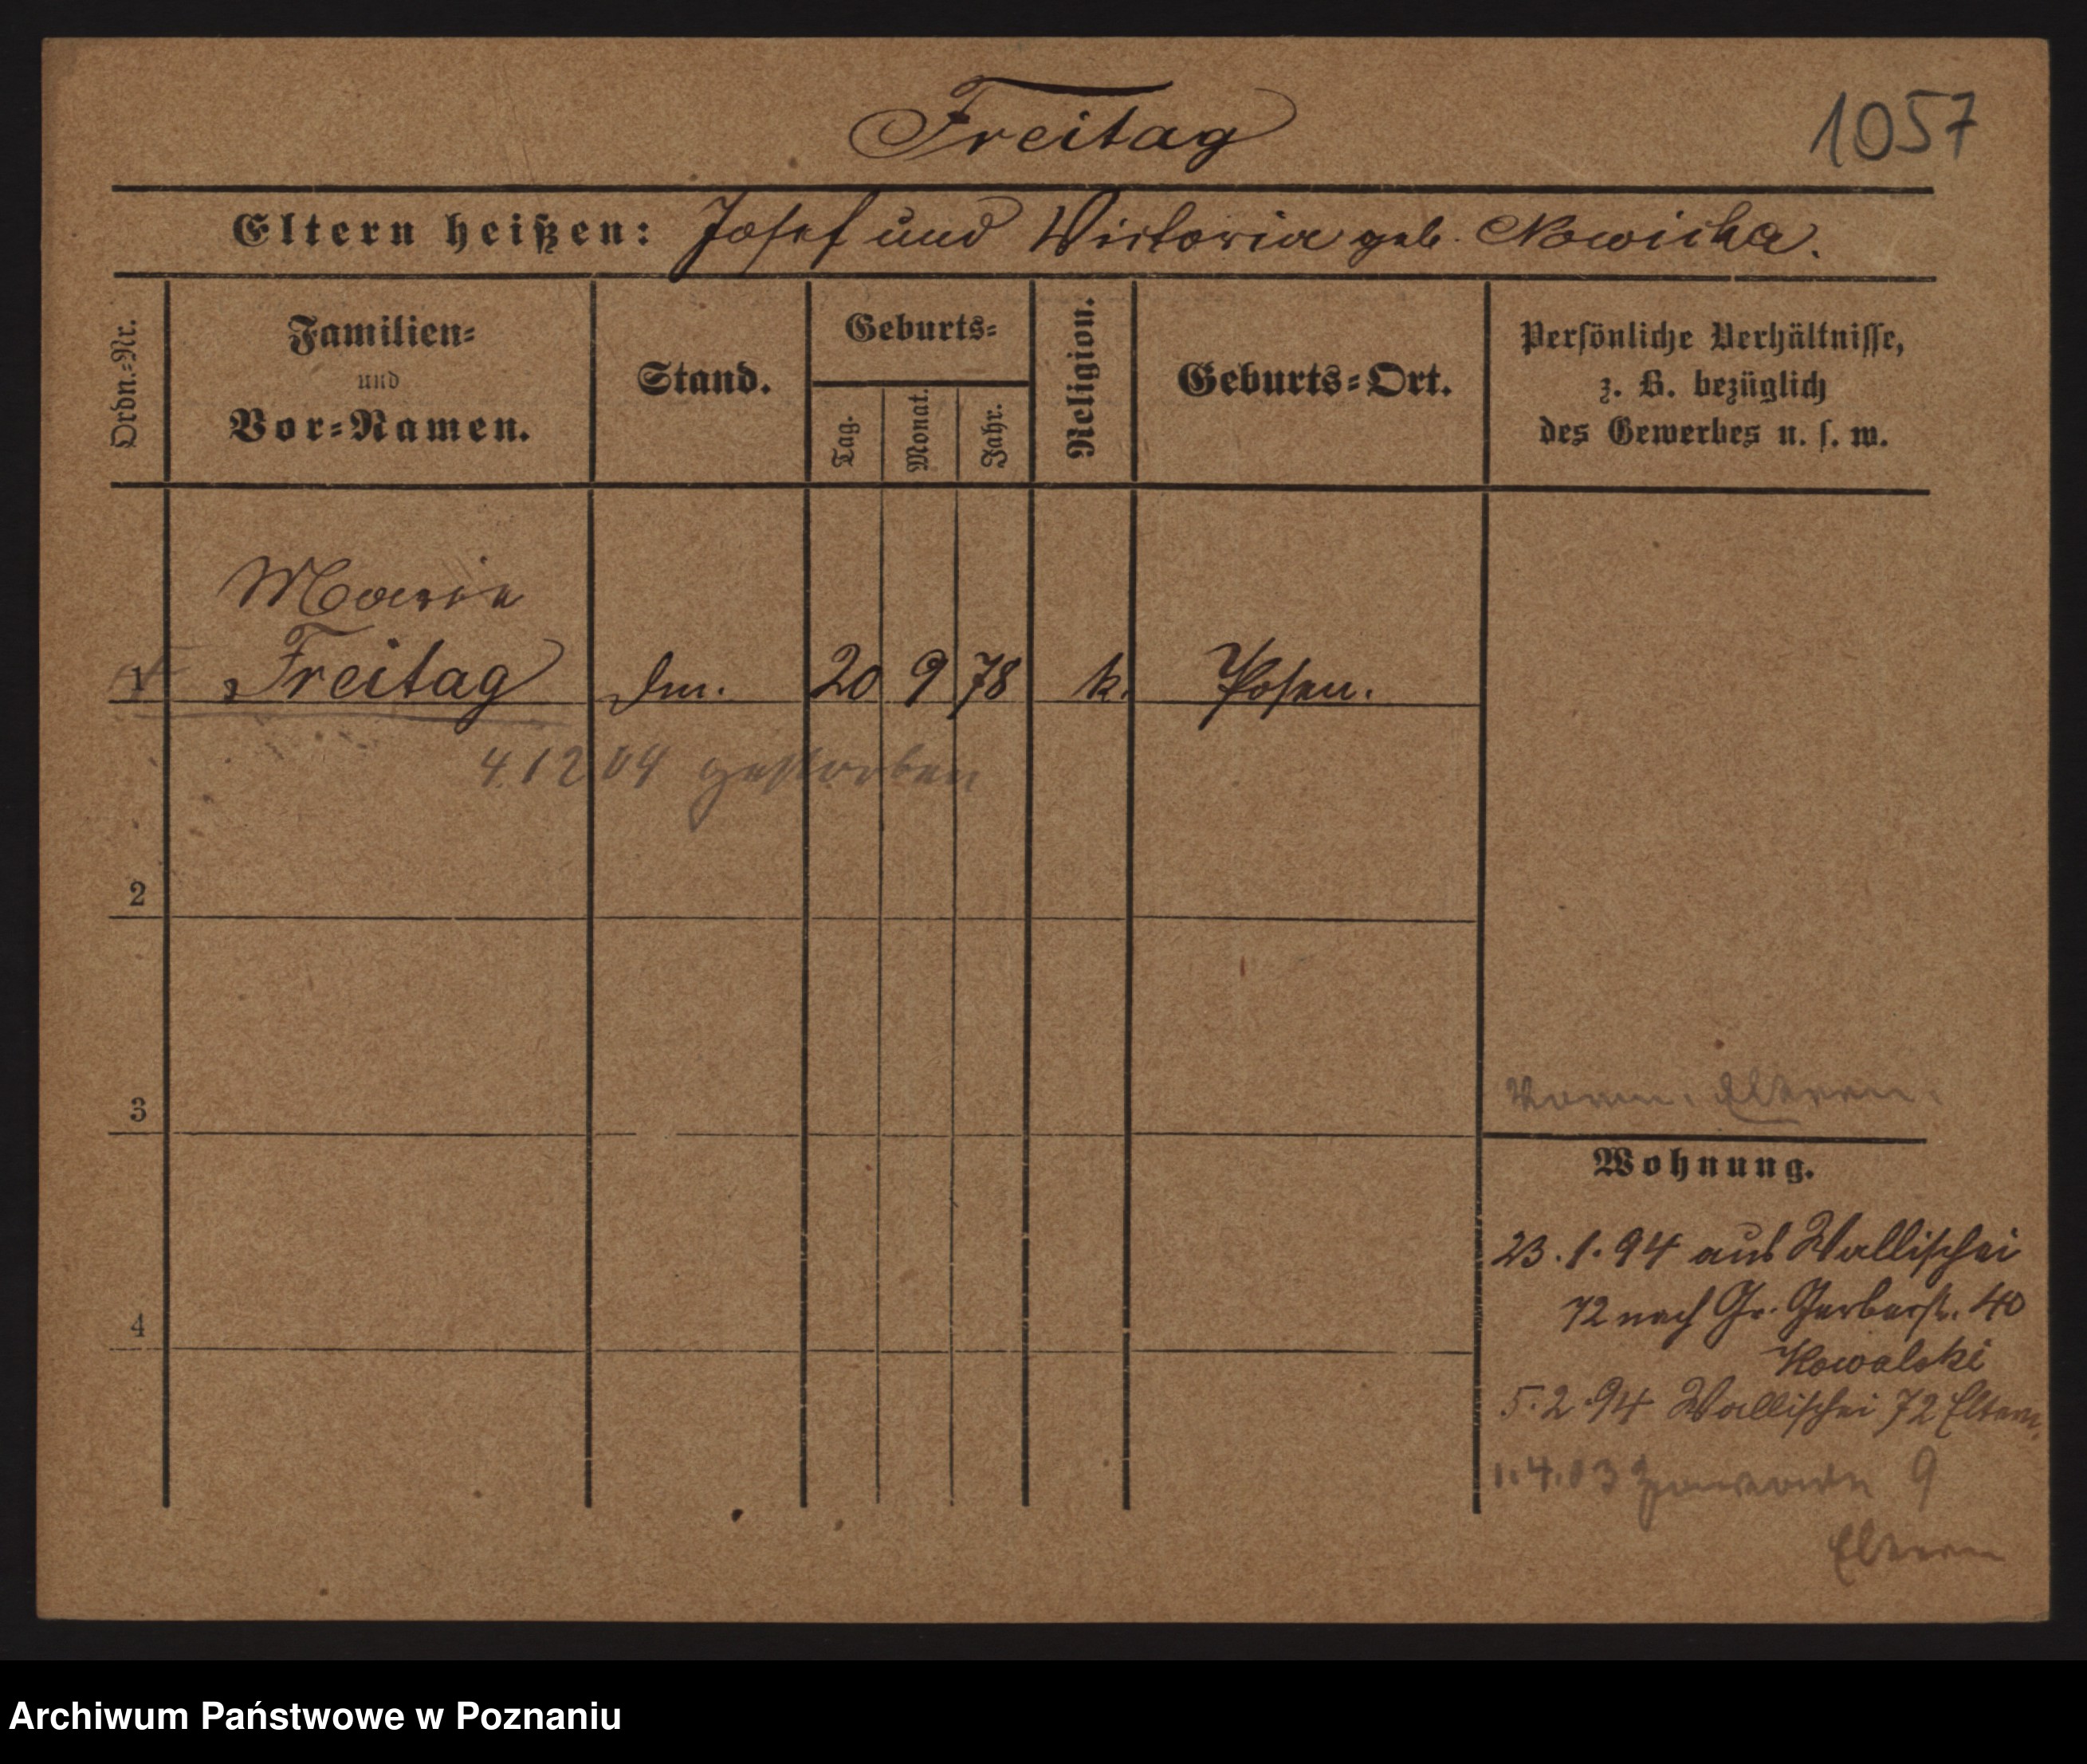 Freitag
1057
Eltern heißen: Josef und Victoria geb. Nowicka.
Ordn.-Nr.
Familien-
und
Vor-Namen.
Stand.
Geburts-
Tag.
Monat.
Jahr.
Religion.
Geburts-Ort.
Persönliche Verhältnisse,
z. B. bezüglich
des Gewerbes u. s. w.
Marie
1 Freitag 20 9 78 k. Posen.
4 12 04 gestorben
2
3
Eltern.
Wohnung.
23.1.94 aus Wallischei
72 nach Gr. Gerberst. 40
Kowalski
5.2.94 Wallischei 72 Eltern.
4
1.4.03 9
Eltern
Archiwum Państwowe w Poznaniu